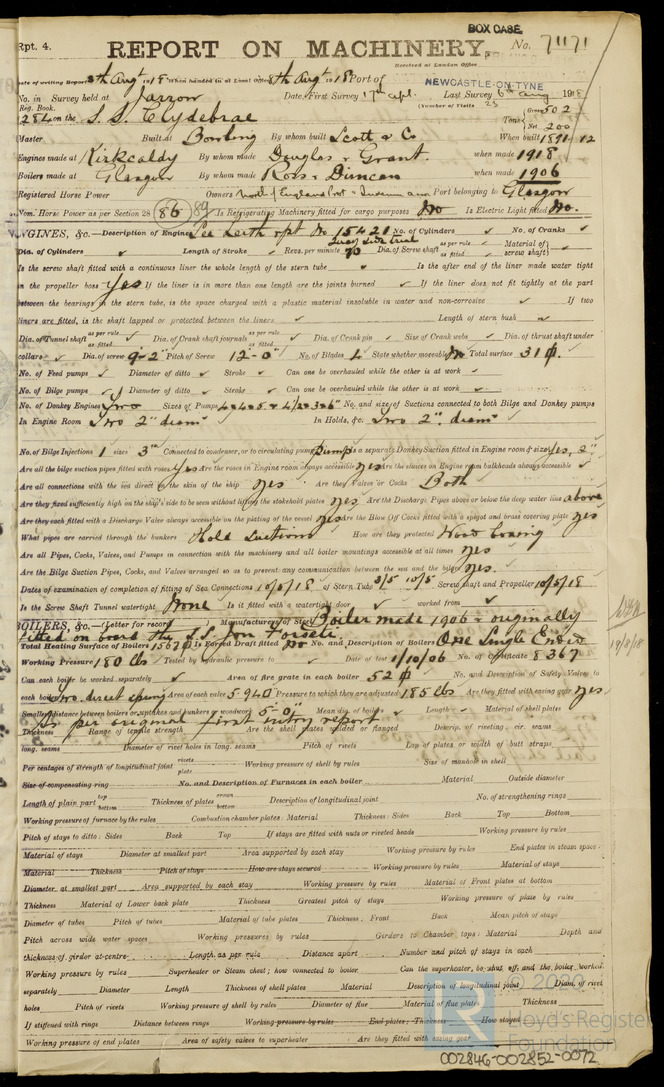 BOX CASE.
Rpt. 4. REPORT ON MACHINERY. No. 71171
Received at London Office
Date of writing Report 8th Augt 1918 When handed in at Local Office 8th Augt 1918 Port of NEWCASTLE-ON-TYNE
No. in Survey held at Jarrow Date, First Survey 17th Apl. Last Survey 6th Aug 1918
Reg. Book. (Number of Visits 23
284 on the S.S. Clydebrae Tons { Gross 502 Net 200
Master Built at Bowling By whom built Scott & Co When built 1891-12
Engines made at Kirkcaldy By whom made Douglas & Grant. when made 1918
Boilers made at Glasgow By whom made Ross & Duncan when made 1906
Registered Horse Power Owners North of England Prot & Indem assn Port belonging to Glasgow
Nom. Horse Power as per Section 28 86 89 Is Refrigerating Machinery fitted for cargo purposes No Is Electric Light fitted No.
ENGINES, &c.—Description of Engines See Leith rpt No 15420 No. of Cylinders ✓ No. of Cranks ✓
Dia. of Cylinders ✓ Length of Stroke ✓ Revs. per minute Quay side trial 90 Dia. of Screw shaft as per rule ✓ as fitted ✓ Material of screw shaft }
Is the screw shaft fitted with a continuous liner the whole length of the stern tube ✓ Is the after end of the liner made water tight
in the propeller boss Yes If the liner is in more than one length are the joints burned ✓ If the liner does not fit tightly at the part
between the bearings in the stern tube, is the space charged with a plastic material insoluble in water and non-corrosive ✓ If two
liners are fitted, is the shaft lapped or protected between the liners ✓ Length of stern bush ✓
Dia. of Tunnel shaft as per rule as fitted Dia. of Crank shaft journals as per rule as fitted Dia. of Crank pin ✓ Size of Crank webs ✓ Dia. of thrust shaft under
collars ✓ Dia. of screw 9-2" Pitch of Screw 12-0" No. of Blades 4 State whether moveable No Total surface 31 ф.
No. of Feed pumps ✓ Diameter of ditto ✓ Stroke ✓ Can one be overhauled while the other is at work ✓
No. of Bilge pumps ✓ Diameter of ditto ✓ Stroke ✓ Can one be overhauled while the other is at work ✓
No. of Donkey Engines Two Sizes of Pumps No. and size of Suctions connected to both Bilge and Donkey pumps
In Engine Room Two 2" diamr In Holds, &c. Two 2". diamr
No. of Bilge Injections 1 sizes 3" Connected to condenser, or to circulating pump Pump Is a separate Donkey Suction fitted in Engine room & size Yes, 2"
Are all the bilge suction pipes fitted with roses Yes Are the roses in Engine room always accessible yes Are the sluices on Engine room bulkheads always accessible ✓
Are all connections with the sea direct on the skin of the ship yes Are they Valves or Cocks Both
Are they fixed sufficiently high on the ship's side to be seen without lifting the stokehold plates yes Are the Discharge Pipes above or below the deep water line above
Are they each fitted with a Discharge Valve always accessible on the plating of the vessel yes Are the Blow Off Cocks fitted with a spigot and brass covering plate yes
What pipes are carried through the bunkers Hold Suctions How are they protected Wood boxing
Are all Pipes, Cocks, Valves, and Pumps in connection with the machinery and all boiler mountings accessible at all times yes
Are the Bilge Suction Pipes, Cocks, and Valves arranged so as to prevent any communication between the sea and the bilges yes.
Dates of examination of completion of fitting of Sea Connections 10/5/18 of Stern Tube 3/5 10/5 Screw shaft and Propeller 10/5/18
Is the Screw Shaft Tunnel watertight None Is it fitted with a watertight door ✓ worked from ✓
BOILERS, &c.—(Letter for record ) Manufacturers of Steel Boiler made 1906 & originally
fitted on board the S.S. Jon Forsete
Total Heating Surface of Boilers 1567 ф Is Forced Draft fitted No No. and Description of Boilers One Single Ended
Working Pressure 180 lbs Tested by hydraulic pressure to ✓ Date of test 3/10/06 No. of Certificate 8367
Can each boiler be worked separately ✓ Area of fire grate in each boiler 52 ф No. and Description of Safety Valves to
each boiler Two. direct spring Area of each valve 5.940 Pressure to which they are adjusted 185 lbs Are they fitted with easing gear yes
Smallest distance between boilers or uptakes and bunkers or woodwork 5-0" Mean dia. of boilers ✓ Length ✓ Material of shell plates
As per original first entry report
Thickness Range of tensile strength Are the shell plates welded or flanged Descrip. of riveting: cir. seams
long. seams Diameter of rivet holes in long. seams Pitch of rivets Lap of plates or width of butt straps
Per centages of strength of longitudinal joint rivets plate Working pressure of shell by rules Size of manhole in shell
Size of compensating ring No. and Description of Furnaces in each boiler Material Outside diameter
Length of plain part top bottom Thickness of plates crown bottom Description of longitudinal joint No. of strengthening rings
Working pressure of furnace by the rules Combustion chamber plates: Material Thickness: Sides Back Top Bottom
Pitch of stays to ditto: Sides Back Top If stays are fitted with nuts or riveted heads Working pressure by rules
Material of stays Diameter at smallest part Area supported by each stay Working pressure by rules End plates in steam space:
Material Thickness Pitch of stays How are stays secured Working pressure by rules Material of stays
Diameter at smallest part Area supported by each stay Working pressure by rules Material of Front plates at bottom
Thickness Material of Lower back plate Thickness Greatest pitch of stays Working pressure of plate by rules
Diameter of tubes Pitch of tubes Material of tube plates Thickness: Front Back Mean pitch of stays
Pitch across wide water spaces Working pressures by rules Girders to Chamber tops: Material Depth and
thickness of girder at centre Length as per rule Distance apart Number and pitch of stays in each
Working pressure by rules Superheater or Steam chest; how connected to boiler Can the superheater be shut off and the boiler worked
separately Diameter Length Thickness of shell plates Material Description of longitudinal joint Diam. of rivet
holes Pitch of rivets Working pressure of shell by rules Diameter of flue Material of flue plates Thickness
If stiffened with rings Distance between rings Working pressure by rules End plates: Thickness How stayed
Working pressure of end plates Area of safety valves to superheater Are they fitted with easing gear
19/8/18
© 2020
Lloyd's Register
Foundation
002846-002852-0072